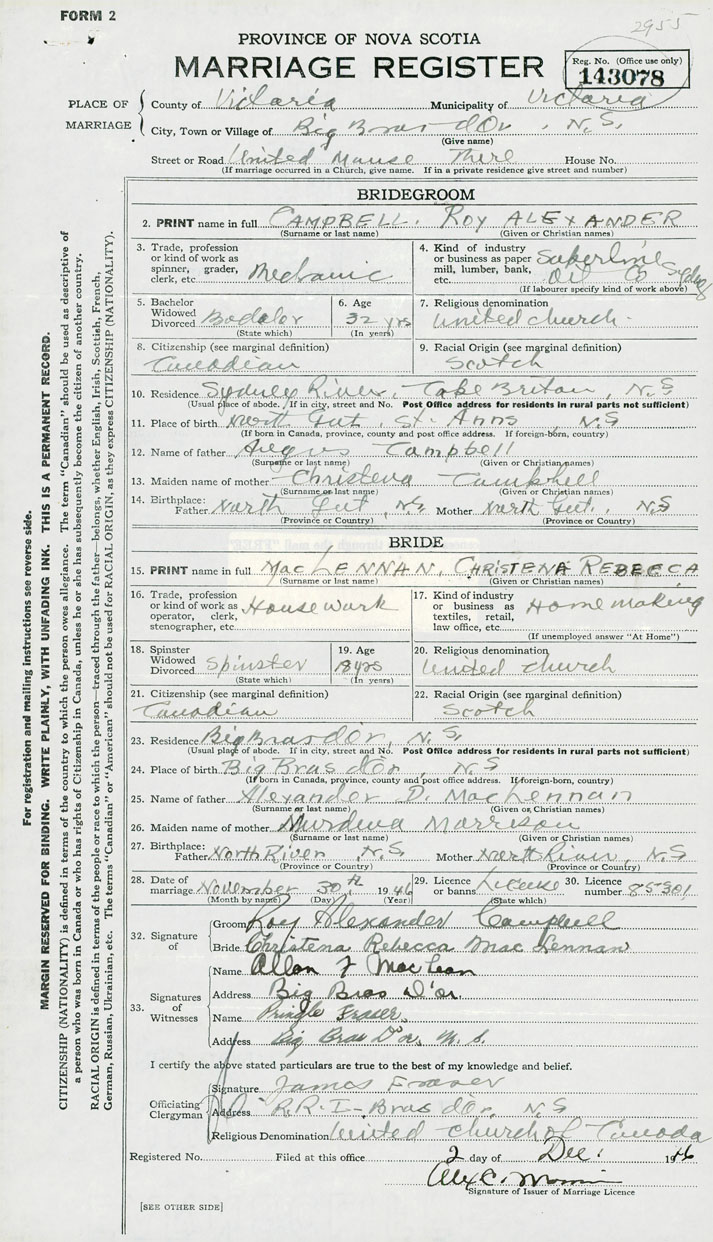 FORM 2
2955
PROVINCE OF NOVA SCOTIA
MARRIAGE REGISTER
Reg. No. (Office use only)
143078
PLACE OF MARRIAGE
County of Victoria Municipality of Victoria
City, Town or Village of Big Bras d'Or, N.S.
(Give name)
Street or Road United Manse There House No.
(If marriage occurred in a Church, give name. If in a private residence give street and number)
BRIDEGROOM
2. PRINT name in full CAMPBELL. ROY ALEXANDER
(Surname or last name) (Given or Christian names)
3. Trade, profession or kind of work as spinner, grader, clerk, etc. Mechanic
4. Kind of industry or business as paper mill, lumber, bank, etc. Oil Co Sydney
(If labourer specify kind of work above)
5. Bachelor Widowed Divorced
(State which)
6. Age 32 yrs
(In years)
7. Religious denomination
United church
8. Citizenship (see marginal definition)
Canadian
9. Racial Origin (see marginal definition)
Scotch
10. Residence Sydney River, Cape Breton, N.S
(Usual place of abode. If in city, street and No. Post Office address for residents in rural parts not sufficient)
11. Place of birth North Gut, St. Anns, N.S
(If born in Canada, province, county and post office address. If foreign-born, country)
12. Name of father Angus Campbell
(Surname or last name) (Given or Christian names)
13. Maiden name of mother Christena Campbell
(Surname or last name) (Given or Christian names)
14. Birthplace: Father North Gut, N.S Mother North Gut. N.S
(Province or Country) (Province or Country)
BRIDE
15. PRINT name in full MacLENNAN, CHRISTENA REBECCA
(Surname or last name) (Given or Christian names)
16. Trade, profession or kind of work as operator, clerk, stenographer, etc. Housework
17. Kind of industry or business as textiles, retail, law office, etc. Homemaking
(If unemployed answer "At Home")
18. Spinster Widowed Divorced Spinster
(State which)
19. Age 18 yrs
(In years)
20. Religious denomination
United church
21. Citizenship (see marginal definition)
Canadian
22. Racial Origin (see marginal definition)
Scotch
23. Residence Big Bras d'Or, N.S.
(Usual place of abode. If in city, street and No. Post Office address for residents in rural parts not sufficient)
24. Place of birth Big Bras d'Or, N.S
(If born in Canada, province, county and post office address. If foreign-born, country)
25. Name of father Alexander D. MacLennan
(Surname or last name) (Given or Christian names)
26. Maiden name of mother Murdena Morrison
(Surname or last name) (Given or Christian names)
27. Birthplace: Father North River, N.S Mother North River, N.S
(Province or Country) (Province or Country)
28. Date of marriage November 30th 1946
(Month by name) (Day) (Year)
29. Licence or banns License
(State which)
30. Licence number 85301
32. Signature of
Groom Roy Alexander Campbell
Bride Christena Rebecca MacLennan
33. Signatures of Witnesses
Name Allan F MacLean
Address Big Bras D'or
Name Pringle Fraser
Address Big Bras D'or, N.S.
I certify the above stated particulars are true to the best of my knowledge and belief.
Officiating Clergyman
Signature James Fraser
Address R.R.I- Bras d'Or, N.S
Religious Denomination United church of Canada
Registered No. Filed at this office 2 day of Dec. 1946
Alex C.
Signature of Issuer of Marriage Licence
[SEE OTHER SIDE]
For registration and mailing instructions see reverse side.
MARGIN RESERVED FOR BINDING. WRITE PLAINLY, WITH UNFADING INK. THIS IS A PERMANENT RECORD.
CITIZENSHIP (NATIONALITY) is defined in terms of the country to which the person owes allegiance. The term "Canadian" should be used as descriptive of
a person who was born in Canada or who has rights of Citizenship in Canada, unless he or she has subsequently become the citizen of another country.
RACIAL ORIGIN is defined in terms of the people or race to which the person—traced through the father—belongs, whether English, Irish, Scottish, French,
German, Russian, Ukrainian, etc. The terms "Canadian" or "American" should not be used for RACIAL ORIGIN, as they express CITIZENSHIP (NATIONALITY).